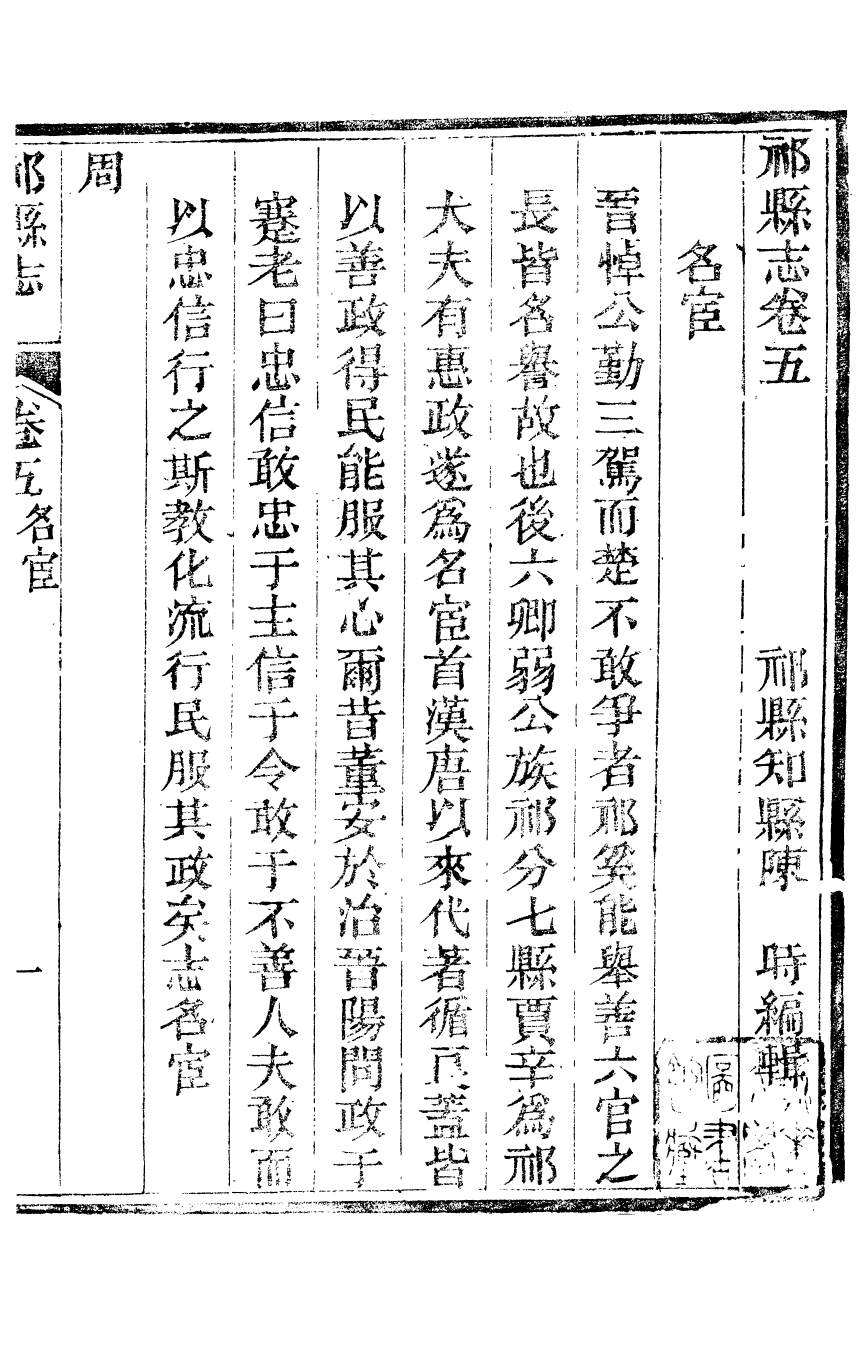 祁縣志卷五
祁縣知縣陳 時編輯
名宦
晉悼公勤三駕而楚不敢爭者祁奚能舉善六官之
長皆名譽故也後六卿弱公族祁分七縣賈辛爲祁
大夫有惠政遂爲名宦首漢唐以來代著循良蓋皆
以善政得民能服其心爾昔董安於治晉陽問政于
蹇老曰忠信敢忠于主信于令敢于不善人夫敢而
以忠信行之斯教化流行民服其政矣志名宦
周
祁縣志
卷五名宦
一